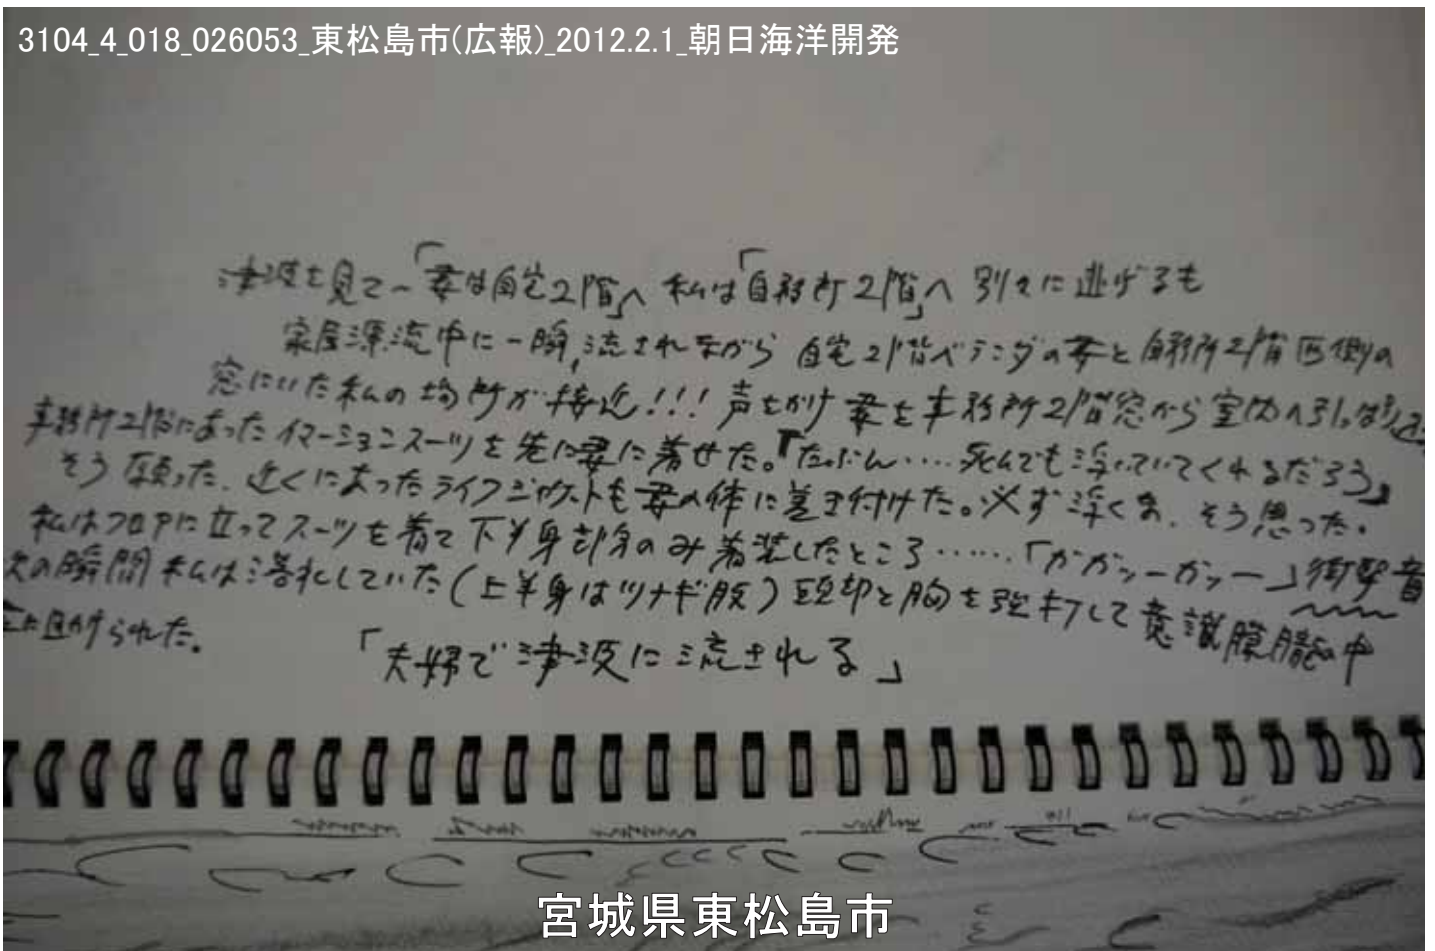 3104_4_018_026053_東松島市(広報)_2012.2.1_朝日海洋開発
津波を見て〜「妻は自宅2階」へ 私は「自務所2階」へ 別々に逃げるも
家屋漂流中に一瞬,流されながら 自宅2階ベランダの妻と自務所2階西側の
窓にいた私の場所が接近!!! 声をかけ妻を事務所2階窓から室内へ引っぱり込
事務所2階にあったイマーションスーツを先に妻に着せた。『たぶん‥‥死んでも浮いていてくれるだろう』
そう願った、近くにあったライフジャケットも妻の体に巻き付けた。必ず浮くな、そう思った。
私はフロアに立ってスーツを着て下半身部分のみ着装したところ……「ガガッーガッー」衝撃音
次の瞬間私は落水していた(上半身はツナギ服)頭部と胸を強打して意識朦朧の中
られた。
「夫婦で津波に流される」
宮城県東松島市